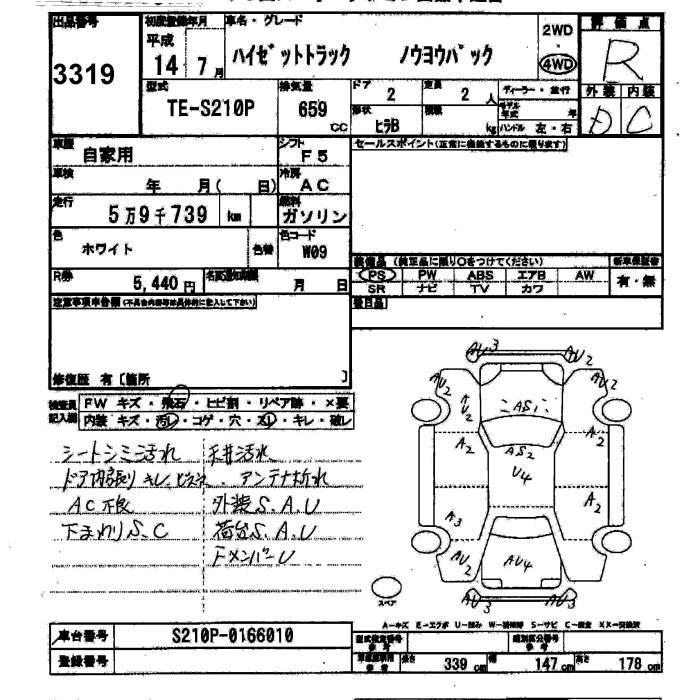 出品番号
3319
初度登録年月
平成
14 年 7 月
車名・グレード
ハイゼットトラック ノウヨウパック
2WD
・
4WD
評価点
R
型式
TE-S210P
排気量
659 cc
ドア
2
定員
2 人
形状
ヒラB
積載
kg
ディーラー・並行
モデル年式 年
ハンドル 左・右
外装 内装
D C
車歴
自家用
シフト
F5
セールスポイント(正常に機能するものに限ります)
車検
年 月( 日)
冷房
AC
走行
5万9千739 km
燃料
ガソリン
色
ホワイト
色替
色コード
W09
装備品 (純正品に限り○をつけてください)
新車保証書
PS PW ABS エアB AW
SR ナビ TV カワ
有・無
R券
5,440円
名変通知期限
月 日
後日品
注意事項申告欄(不具合内容等は具体的に記入して下さい)
修復歴 有〔箇所 〕
検査員記入欄
FW キズ・飛石・ヒビ割・リペア跡・×要
内装 キズ・汚レ・コゲ・穴・スレ・キレ・破レ
シートシミ汚れ 天井汚れ
ドア内張りキレ ビス欠 アンテナ折れ
AC不良 外装S.A.U
下まわりS.C 荷台S.A.U
FメンバーU
AU3
AU2
AU2
AU2
AU2
AS1
A2
AS2
A2
U4
A3
A2
AU2
AU4
AU2
AU3
AU3
スペア
A-キズ E-エクボ U-凹み W-補修跡 S-サビ C-腐食 XX-交換済
車台番号
S210P-0166010
登録番号
型式指定番号 参考
類別区分番号 参考
長さ
339 cm
幅
147 cm
高さ
178 cm